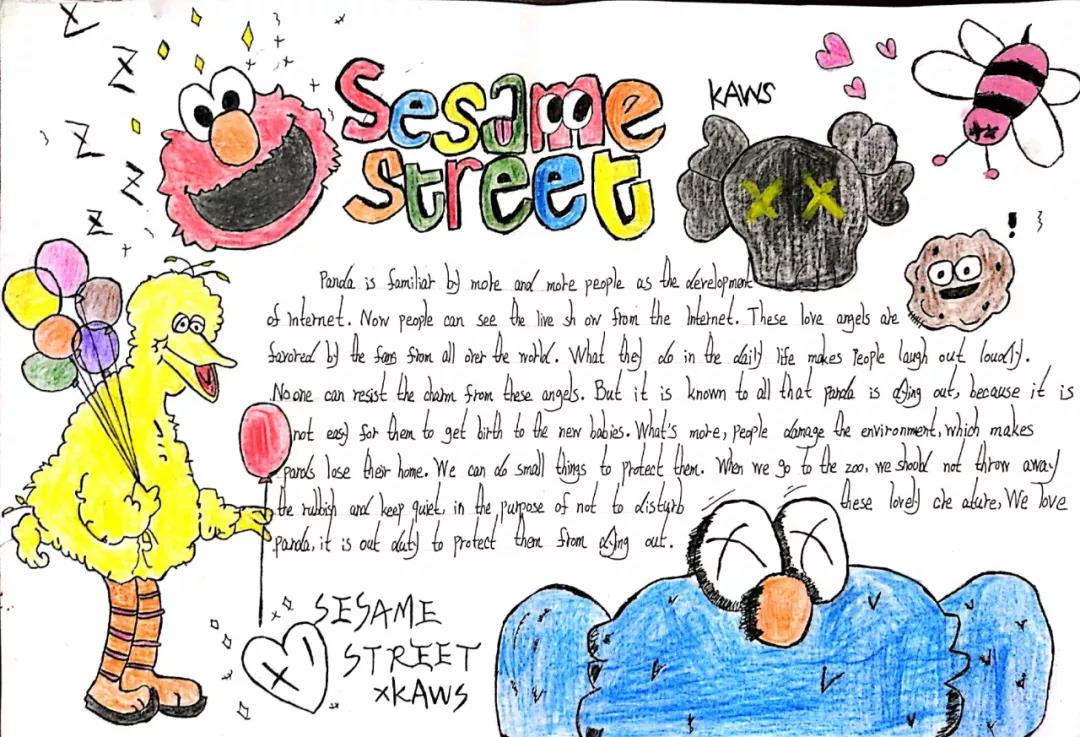 Sesame
Street
KAWS
Panda is familiar by more and more people as the development
of Internet. Now people can see the live sh ow from the Internet. These love angels are
favored by the fans from all over the world. What they do in the daily life makes People laugh out loudly.
No one can resist the charm from these angels. But it is known to all that panda is dying out, because it is
not easy for them to get birth to the new babies. What's more, people damage the environment, which makes
pands lose their home. We can do small things to protect them. When we go to the zoo, we should not throw away
the rubbish and keep quiet, in the purpose of not to disturb these lovely cre ature, We love
panda, it is out duty to protect them from dying out.
SESAME
STREET
xKAWS
Z
Z
Z
Z
Z
!